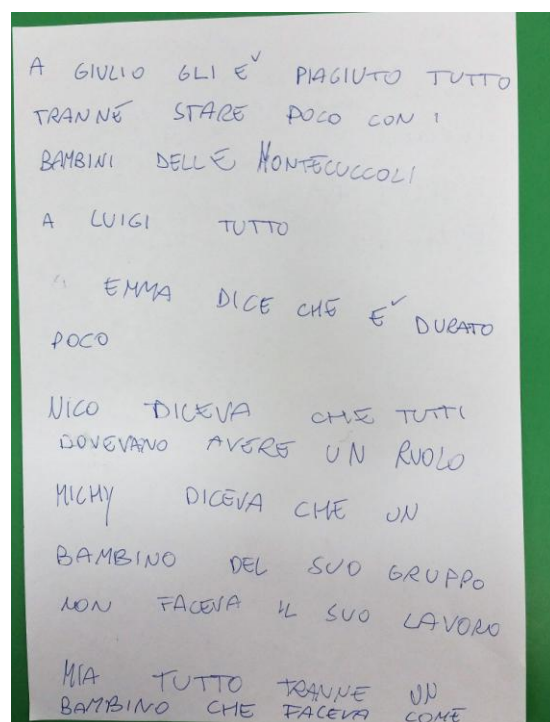 A GIULIO GLI E' PIAGIUTO TUTTO
TRANNÉ STARE POCO CON I
BAMBINI DELLE MONTECUCCOLI
A LUIGI TUTTO
EMMA DICE CHE E' DURATO
POCO
NICO DICEVA CHE TUTTI
DOVEVANO AVERE UN RUOLO
MICHY DICEVA CHE UN
BAMBINO DEL SUO GRUPPO
NON FACEVA IL SUO LAVORO
MIA TUTTO TRANNE UN
BAMBINO CHE FACEVA COME